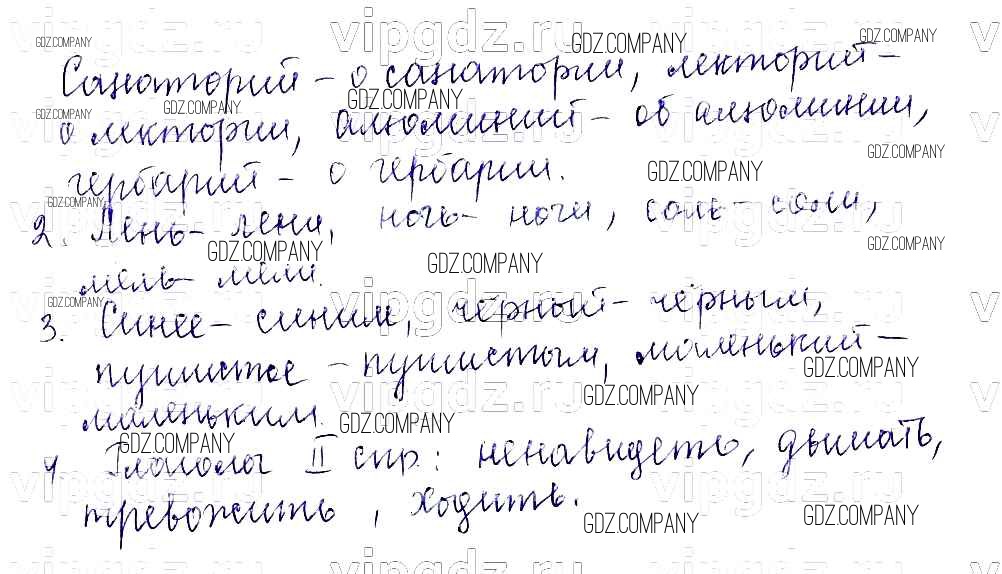 Санаторий - о санатории, лекторий -
о лектории, алюминий - об алюминии,
гербарий - о гербарии.
2. Лень - лени, ночь - ночи, соль - соли,
мель - мели.
3. Синее - синим, чёрный - чёрным,
пушистое - пушистым, маленький -
маленьким.
4. Глаголы II спр.: ненавидеть, дышать,
тревожить, ходить.